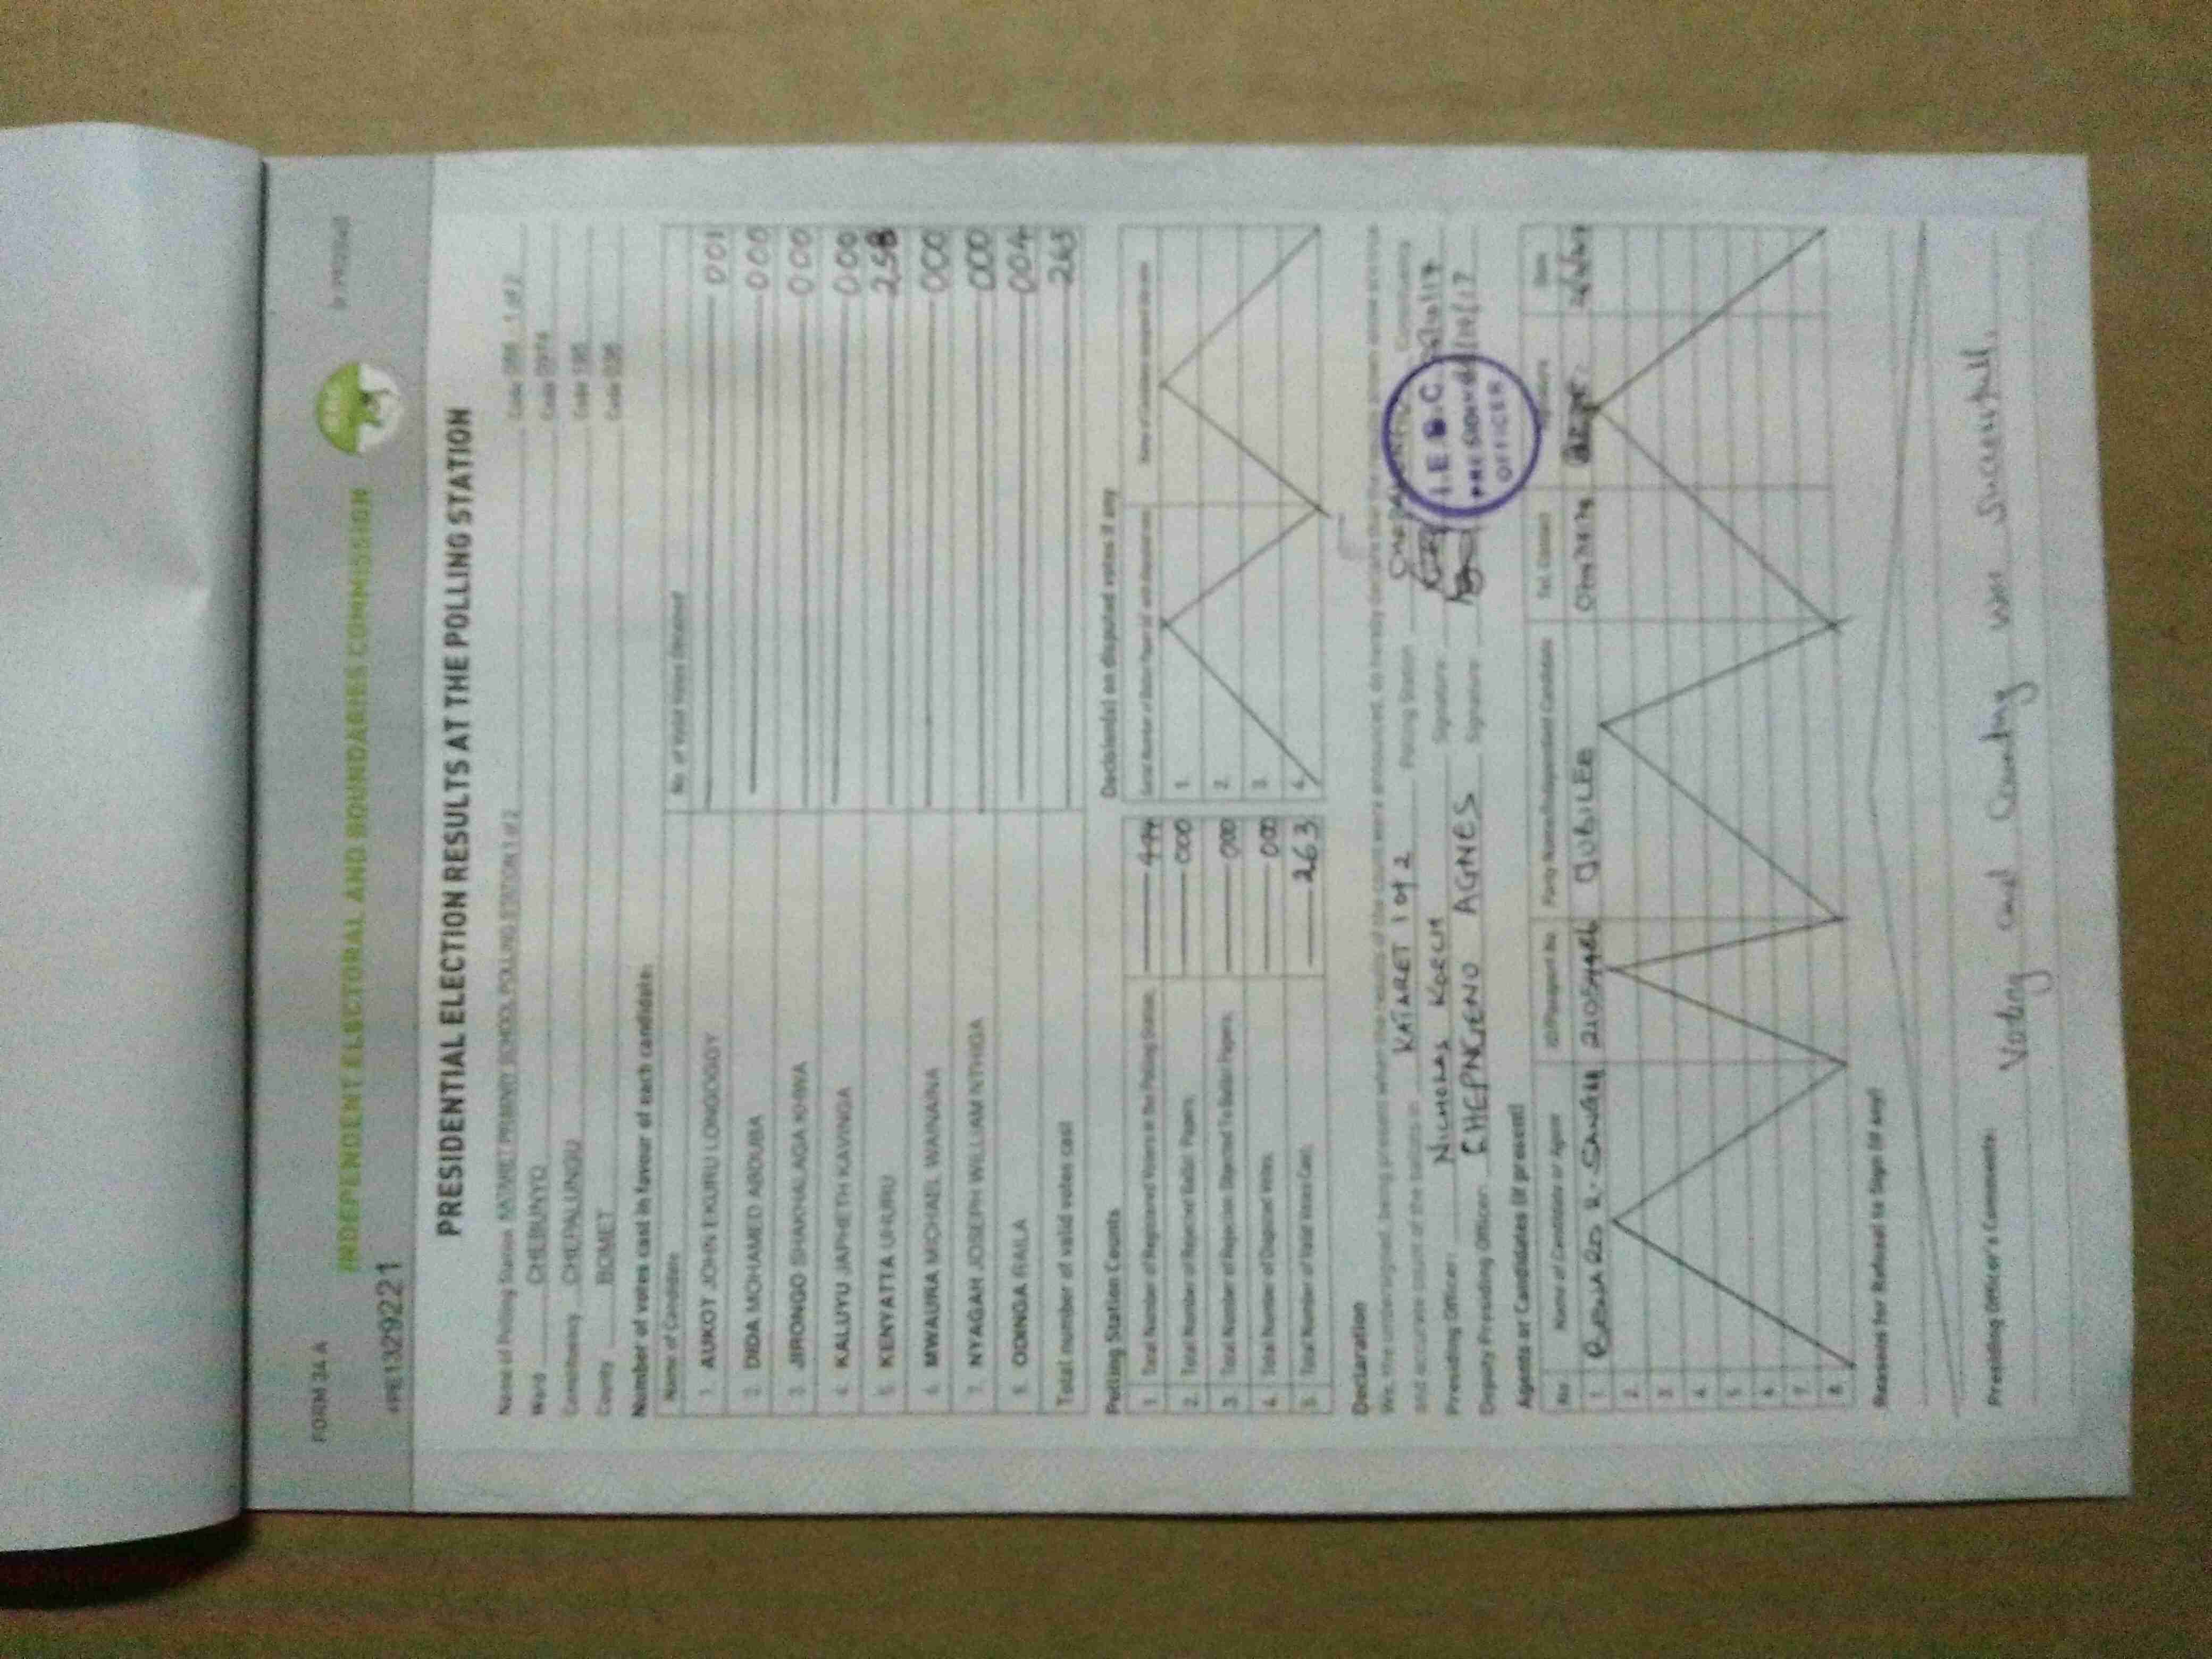 FORM 34A
INDEPENDENT ELECTORAL AND BOUNDARIES COMMISSION
#PE1329221
PRESIDENTIAL ELECTION RESULTS AT THE POLLING STATION
Name of Polling Station KATARET PRIMARY SCHOOL POLLING STATION 1 of 2 Code 1 of 2
Ward CHEBUNYO Code
Constituency CHEPALUNGU Code 195
County BOMET Code 036
Number of votes cast in favour of each candidate:
Name of Candidate No. of Valid Votes Obtained
1. AUKOT JOHN EKURU LONGOGGY 001
2. DIDA MOHAMED ABDUBA 000
3. JIRONGO SHAKHALAGA KHWA 000
4. KALUYU JAPHETH KAVINGA 000
5. KENYATTA UHURU 258
6. MWAURA MICHAEL WAINAINA 000
7. NYAGAH JOSEPH WILLIAM NTHIGA 000
8. ODINGA RAILA 004
Total number of valid votes cast 263
Polling Station Counts
1. Total Number of Registered Voters in the Polling Station
2. Total Number of Rejected Ballot Papers 000
3. Total Number of Rejection Objected To Ballot Papers 000
4. Total Number of Disputed Votes 000
5. Total Number of Valid Votes Cast 263
Decision(s) on disputed votes if any
1.
2.
3.
4.
Declaration
We, the undersigned, being present when the results of the count were announced, do hereby declare that the
and accurate count of the ballots in KATARET 1 of 2 Polling Station Constituency
Presiding Officer: NICHOLAS KOECH Signature:
Deputy Presiding Officer: CHEPNGENO AGNES Signature:
I.E.B.C.
PRESIDING
OFFICER
Agents or Candidates (if present)
No. Name of Candidate or Agent ID/Passport No. Party Name/Independent Candidate Tel. Contact Signature Date
1. JUBILEE
2.
3.
4.
5.
6.
7.
8.
Reasons for Refusal to Sign (if any)
Presiding Officer's Comments:
Voting and Counting was successfull.